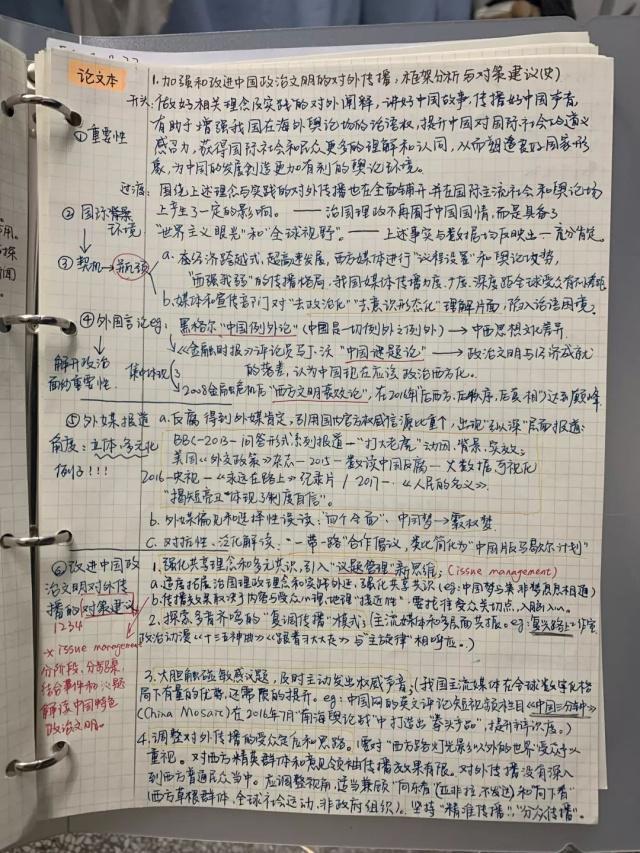 论文本
1.加强和改进中国政治文明的对外传播：框架分析与对策建议(史)
开头：做好相关理念及实践的对外阐释，讲好中国故事，传播好中国声音，
①重要性
有助于增强我国在海外舆论场的话语权，提升中国对国际社会的道义
感召力，获得国际社会和民众更多的理解和认同，从而塑造良好国家形
象，为中国的发展创造更加有利的舆论环境。
过渡：围绕上述理念与实践的对外传播也在全面铺开并在国际主流社会和舆论场
②国际背景
环境
上产生了一定的影响。——治国理政不再囿于中国国情，而是具备了
"世界主义眼光"和"全球视野"。——上述事实与数据均反映出一充分肯定。
③契机→瓶颈
a.在经济跨越式、超高速发展，西方媒体进行"议程设置"和舆论攻势，
"西强我弱"的传播格局，我国媒体传播力度、广度、深度距全球受众有不少差距
b.媒体和宣传部门对"去政治化""去意识形态化"理解片面，陷入话语困境。
④外国言论eg：
黑格尔"中国例外论"(中国是一切例外之例外)→中西思想文化差异
解开政治
面的重要性.
集中体现
《金融时报》评论员马丁·沃"中国谜题论"→政治文明与经济成就
的落差，认为中国现在应该政治西方化。
2008金融危机后"西方文明衰败论"，在2016年"后西方、后秩序、后真相"达到巅峰
⑤外媒报道
a.反腐得到外媒肯定，引用国内官方权威信源比重个，出现"引以深"层面报道：
角度：立体、多元化
例子!!!
BBC-2013-问答形式系列报道-"打大老虎"动因、背景、实效；
美国《外交政策》杂志-2015-数读中国反腐-大数据可视化
2016-央视-《永远在路上》纪录片/2017-.《人民的名义》.
"揭短亮丑"体现了制度自信".
b.外媒偏见和选择性误读："四个全面"、中国梦→霸权梦
C.对抗性、泛化解读："一带一路"合作倡议，类比简化为"中国版马歇尔计划"
⑥改进中国政
治文明对外传
播的对策建议
1.强化共享理念和多元共识，引入"议题管理"新思维；(issue management)
a.适度拓展治国理政理念和实践外延，强化共享共识(eg:中国梦与美非梦息息相通)
b.传播效果取决于内容与受众心理、地理"接近性"：要抓住受众关切点，入脑入心。
1234
-x issue management
分阶段、分步骤，
结合事件和议题
解读中国特色
政治文明。
2.探索多者齐鸣的"复调传播"模式；(主流媒体和多层面共振。eg:复兴路上工作室
政治动漫《十三五神曲》《跟着习大大走》与"主旋律"相呼应。)
3.大胆触碰敏感议题，及时主动发出权威声音；(我国主流媒体在全球数字化格
局下有量的优势，还需质的提升。eg:中国网的英文评论短视频栏目《中国三分钟》
(China Mosaic)在2016年7月"南海舆论战"中打造出"拳头产品"，提升辨识度。)
4.调整对外传播的受众定位和思路。(要对"西方路灯光影"以外的世界受众予以
重视。对西方精英群体和意见领袖传播效果有限。对外传播没有深入
到西方普通民众当中。应调整视角，适当兼顾"向东看(亚非拉、不发达)和"向下看"
(西方草根群体、全球社会运动、非政府组织)。坚持"精准传播"、"分众传播"。